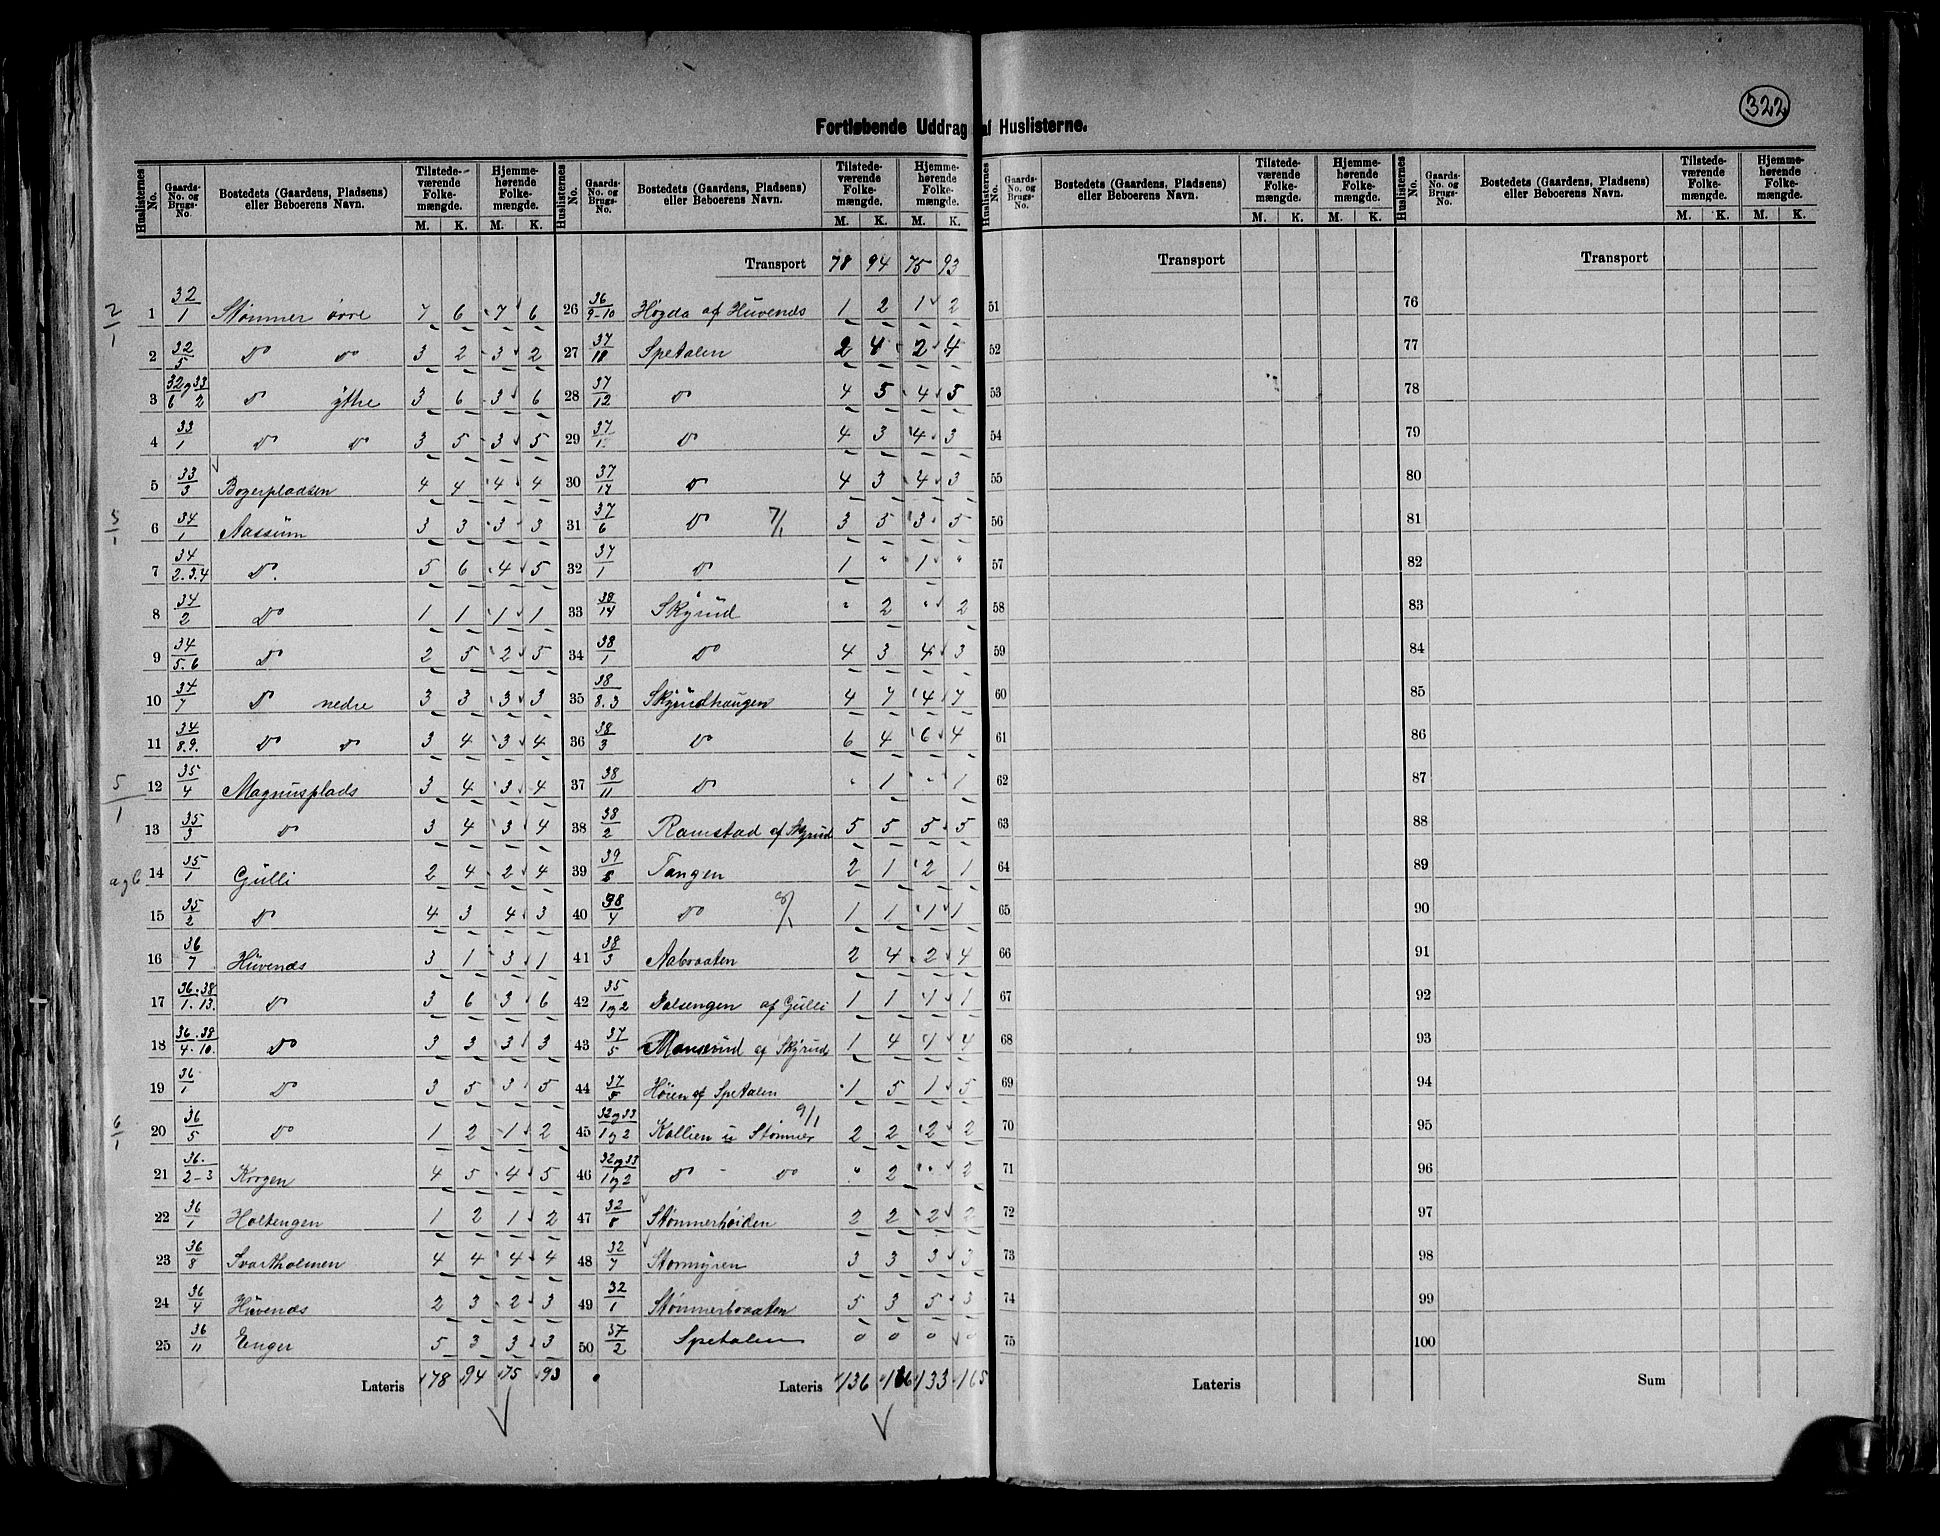 322
Fortløbende Uddrag af Huslisterne.
Huslisternes No. | Gaards-No. og Brugs-No. | Bostedets (Gaardens, Pladsens) eller Beboerens Navn. | Tilstedeværende Folkemængde. M. K. | Hjemmehørende Folkemængde. M. K.
2/1
1 32/1 Stømner øvre 7 6 7 6
2 32/5 Do Do 3 2 3 2
3 32 og 33/6 2 Do ytre 3 6 3 6
4 33/1 Do Do 3 5 3 5
5 33/3 Bogerpladsen 4 4 4 4
6 34/1 Aassum 3 3 3 3
7 34/2.3.4 Do. 5 6 4 5
8 34/2 Do 1 1 1 1
9 34/5.6 Do 2 5 2 5
10 34/7 Do nedre 3 3 3 3
11 34/8.9. Do Do 3 4 3 4
5/1
12 35/4 Magnusplads 3 4 3 4
13 35/3 Do 3 4 3 4
14 35/1 Gulli 2 4 2 4
15 35/2 Do 4 3 4 3
16 36/7 Huvenæs 3 1 3 1
17 36.38/1.13. Do 3 6 3 6
18 36.38/4.10. Do 3 3 3 3
19 36/1 Do 3 5 3 5
6/1
20 36/5 Do 1 2 1 2
21 36./2-3 Krogen 4 5 4 5
22 36/1 Holtengen 1 2 1 2
23 36/8 Svartholmen 4 4 4 4
24 36/4 Huvenæs 2 3 2 3
25 36/11 Enger 5 3 3 3
Lateris 78 94 75 93
Transport 78 94 75 93
26 36/9-10 Høgda af Huvenæs 1 2 1 2
27 37/18 Spetalen 2 4 2 4
28 37/12 Do 4 5 4 5
29 37 Do 4 3 4 3
30 37/17 Do 4 3 4 3
31 37/6 Do 7/1 3 5 3 5
32 37/1 Do 1 " 1 "
33 38/14 Skjrud " 2 " 2
34 38/1 Do 4 3 4 3
35 38/8.3 Skjrudhaugen 4 7 4 7
36 38/3 Do 6 4 6 4
37 38/11 Do " 1 " 1
38 38/2 Ramstad af Skjrud 5 5 5 5
39 39 Tangen 2 1 2 1
40 38/4 Do 8/1 1 1 1 1
41 38/3 Aabraaten 2 4 2 4
42 35/1 og 2 Dalsengen af Gulli 1 1 1 1
43 37/5 af Skjrud 1 4 1 4
44 37 Høien af Spetalen 1 5 1 5
45 32 og 33/1 og 2 Kollien u Stømner 9/1 2 2 2 2
46 32 og 33/1 og 2 Do - Do " 2 " 2
47 32/8 Stømnerhøiden 2 2 2 2
48 32/7 Stormyren 3 3 3 3
49 32/1 Stømnerbraaten 5 3 5 3
50 37/2 Spetalen 0 0 0 0
Lateris 136 166 133 165
Huslisternes No. | Gaards-No. og Brugs-No. | Bostedets (Gaardens, Pladsens) eller Beboerens Navn. | Tilstedeværende Folkemængde. M. K. | Hjemmehørende Folkemængde. M. K.
Transport
51
52
53
54
55
56
57
58
59
60
61
62
63
64
65
66
67
68
69
70
71
72
73
74
75
Lateris
Huslisternes No. | Gaards-No. og Brugs-No. | Bostedets (Gaardens, Pladsens) eller Beboerens Navn. | Tilstedeværende Folkemængde. M. K. | Hjemmehørende Folkemængde. M. K.
Transport
76
77
78
79
80
81
82
83
84
85
86
87
88
89
90
91
92
93
94
95
96
97
98
99
100
Sum